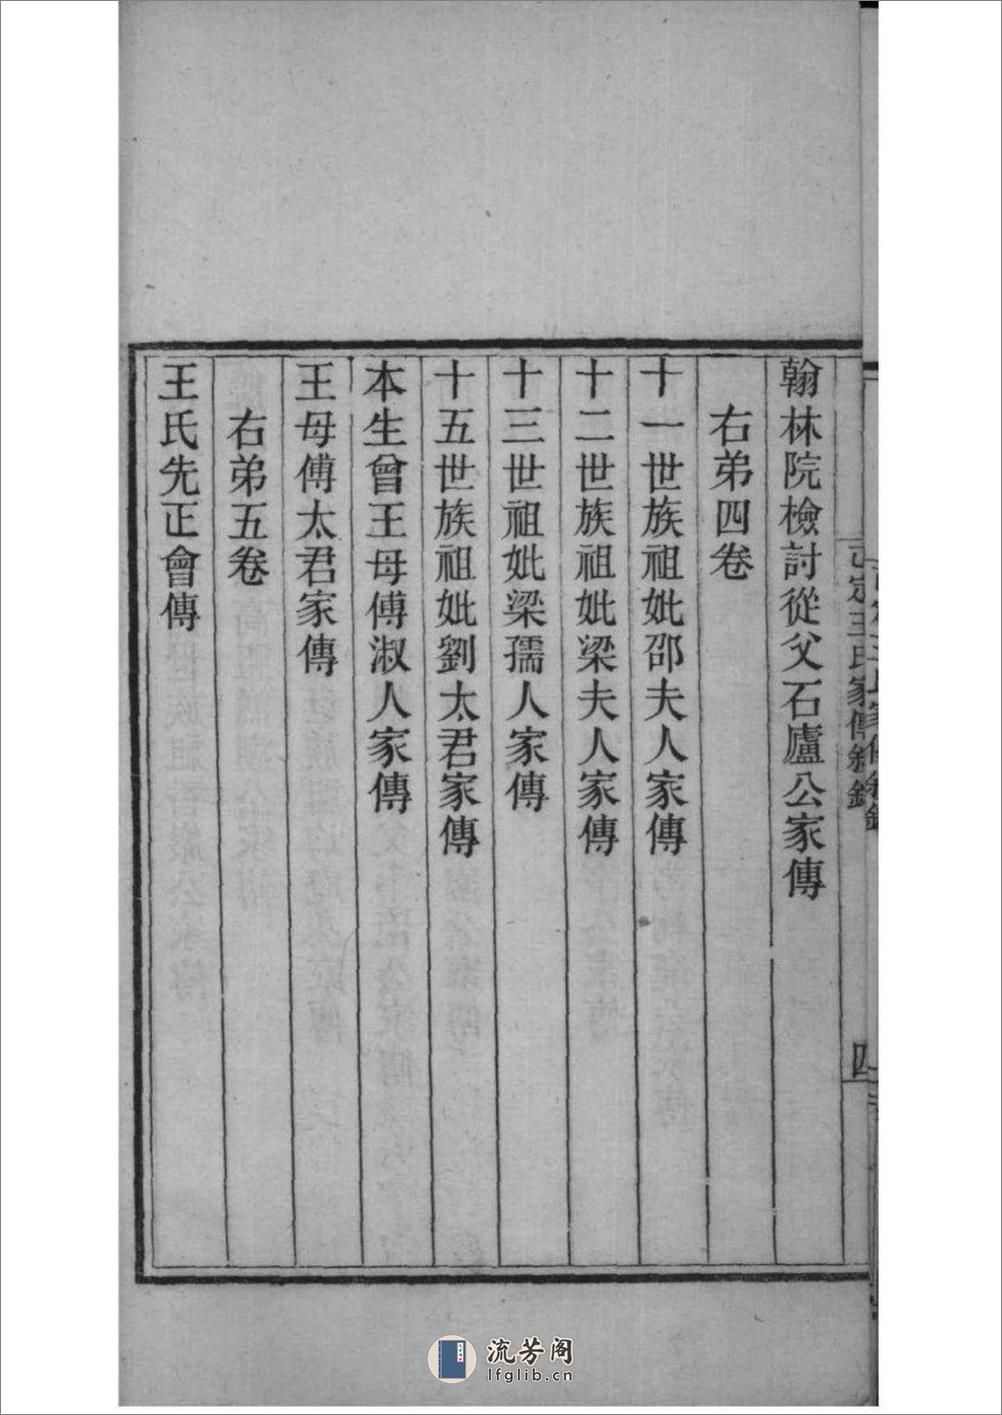 翰林院檢討從父石廬公家傳
右弟四卷
十一世族祖妣邵夫人家傳
十二世族祖妣梁夫人家傳
十三世祖妣梁孺人家傳
十五世族祖妣劉太君家傳
本生曾王母傅淑人家傳
王母傅太君家傳
右弟五卷
王氏先正會傳
四
流芳阁
lfglib.cn